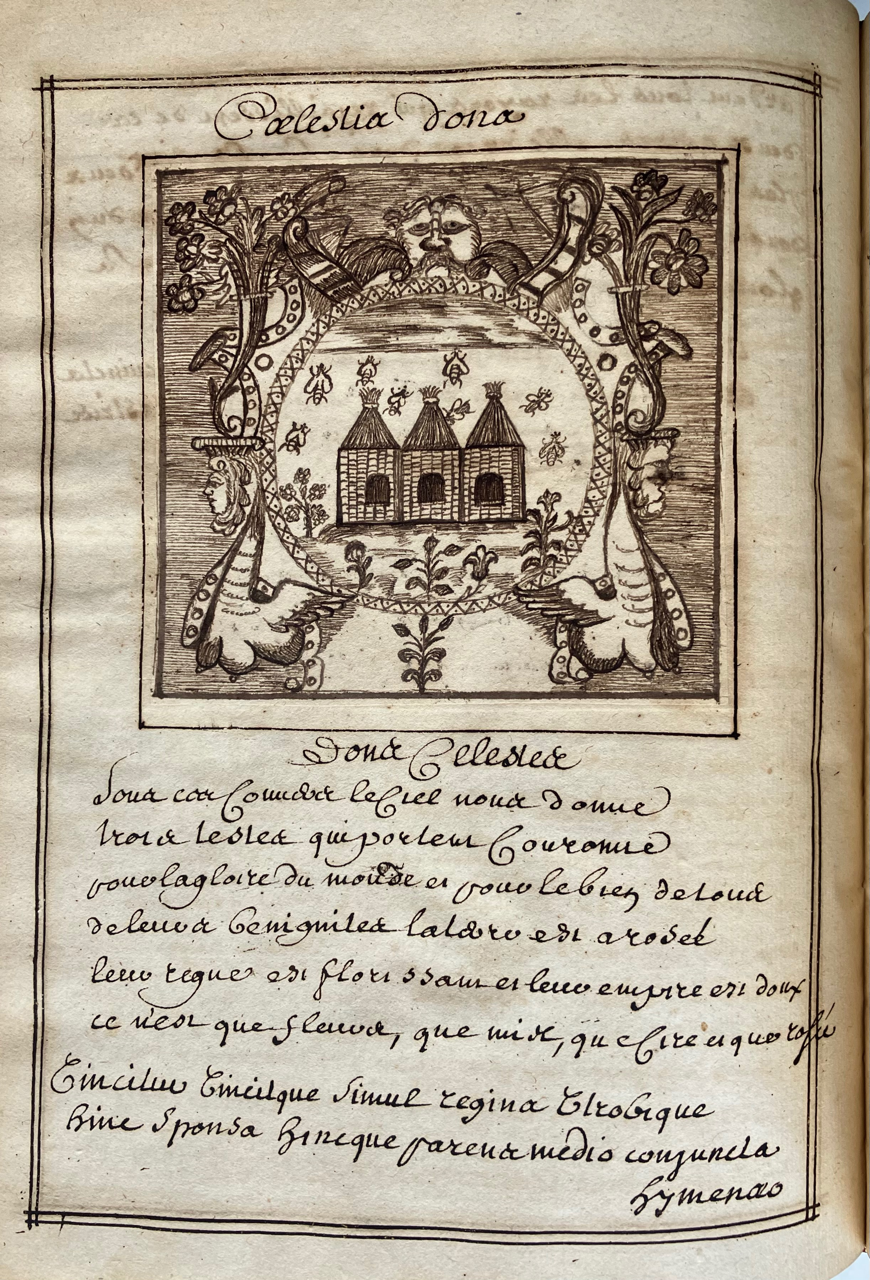 Cœlestia dona
Dons Celestes
Sous ces le Ciel nous donne
trois testes qui portent Couronne
pour la gloire du monde et pour le bien de tous
de leurs benignites la terre est arosée
leur regne est florissant et leur empire est doux
ce n'est que fleurs, que miel, que Cire et que rosée
Vincitur Vincitque simul regina Utrobique
hinc sponsa hincque parens medio conjuncta
hymenæo